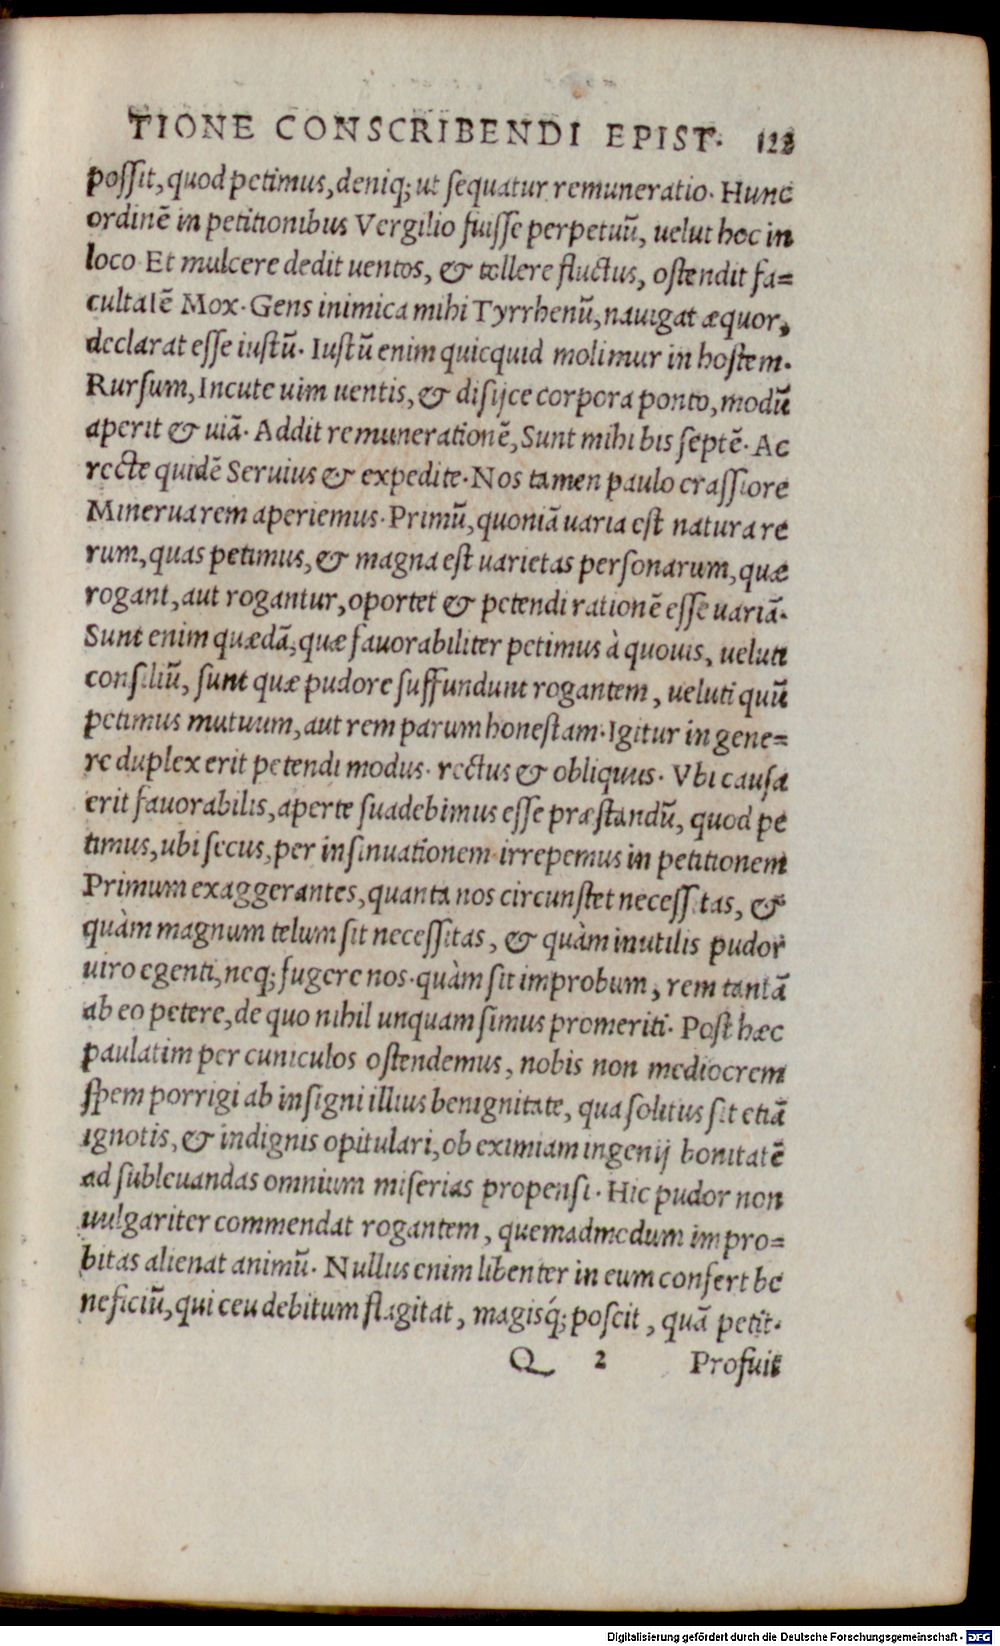 TIONE CONSCRIBENDI EPIST. 122
possit, quod petimus, deniq; ut sequatur remuneratio. Hunc
ordinē in petitionibus Vergilio fuisse perpetuū, uelut hoc in
loco Et mulcere dedit uentos, & tollere fluctus, ostendit fa=
cultatē Mox. Gens inimica mihi Tyrrhenū, nauigat æquor,
declarat esse iustū. Iustū enim quicquid molimur in hostem.
Rursum, Incute uim uentis, & disijce corpora ponto, modū
aperit & uiā. Addit remunerationē, Sunt mihi bis septē. Ac
recte quidē Seruius & expedite. Nos tamen paulo crassiore
Minerua rem aperiemus. Primū, quoniā uaria est natura re
rum, quas petimus, & magna est uarietas personarum, quæ
rogant, aut rogantur, oportet & petendi rationē esse uariā.
Sunt enim quædā, quæ fauorabiliter petimus à quouis, ueluti
consiliū, sunt quæ pudore suffundunt rogantem, ueluti quū
petimus mutuum, aut rem parum honestam. Igitur in gene=
re duplex erit petendi modus. rectus & obliquus. Vbi causa
erit fauorabilis, aperte suadebimus esse præstandū, quod pe
timus, ubi secus, per insinuationem irrepemus in petitionem
Primum exaggerantes, quanta nos circunstet necessitas, &
quàm magnum telum sit necessitas, & quàm inutilis pudor
uiro egenti, neq; fugere nos. quàm sit improbum, rem tantā
ab eo petere, de quo nihil unquam simus promeriti. Post hæc
paulatim per cuniculos ostendemus, nobis non mediocrem
spem porrigi ab insigni illius benignitate, qua solitus sit etiā
ignotis, & indignis opitulari, ob eximiam ingenij bonitatē
ad subleuandas omnium miserias propensi. Hic pudor non
uulgariter commendat rogantem, quemadmodum impro=
bitas alienat animū. Nullus enim libenter in eum confert be
neficiū, qui ceu debitum flagitat, magisq́; poscit, quā petit.
Q 2 Profuit
Digitalisierung gefördert durch die Deutsche Forschungsgemeinschaft - DFG